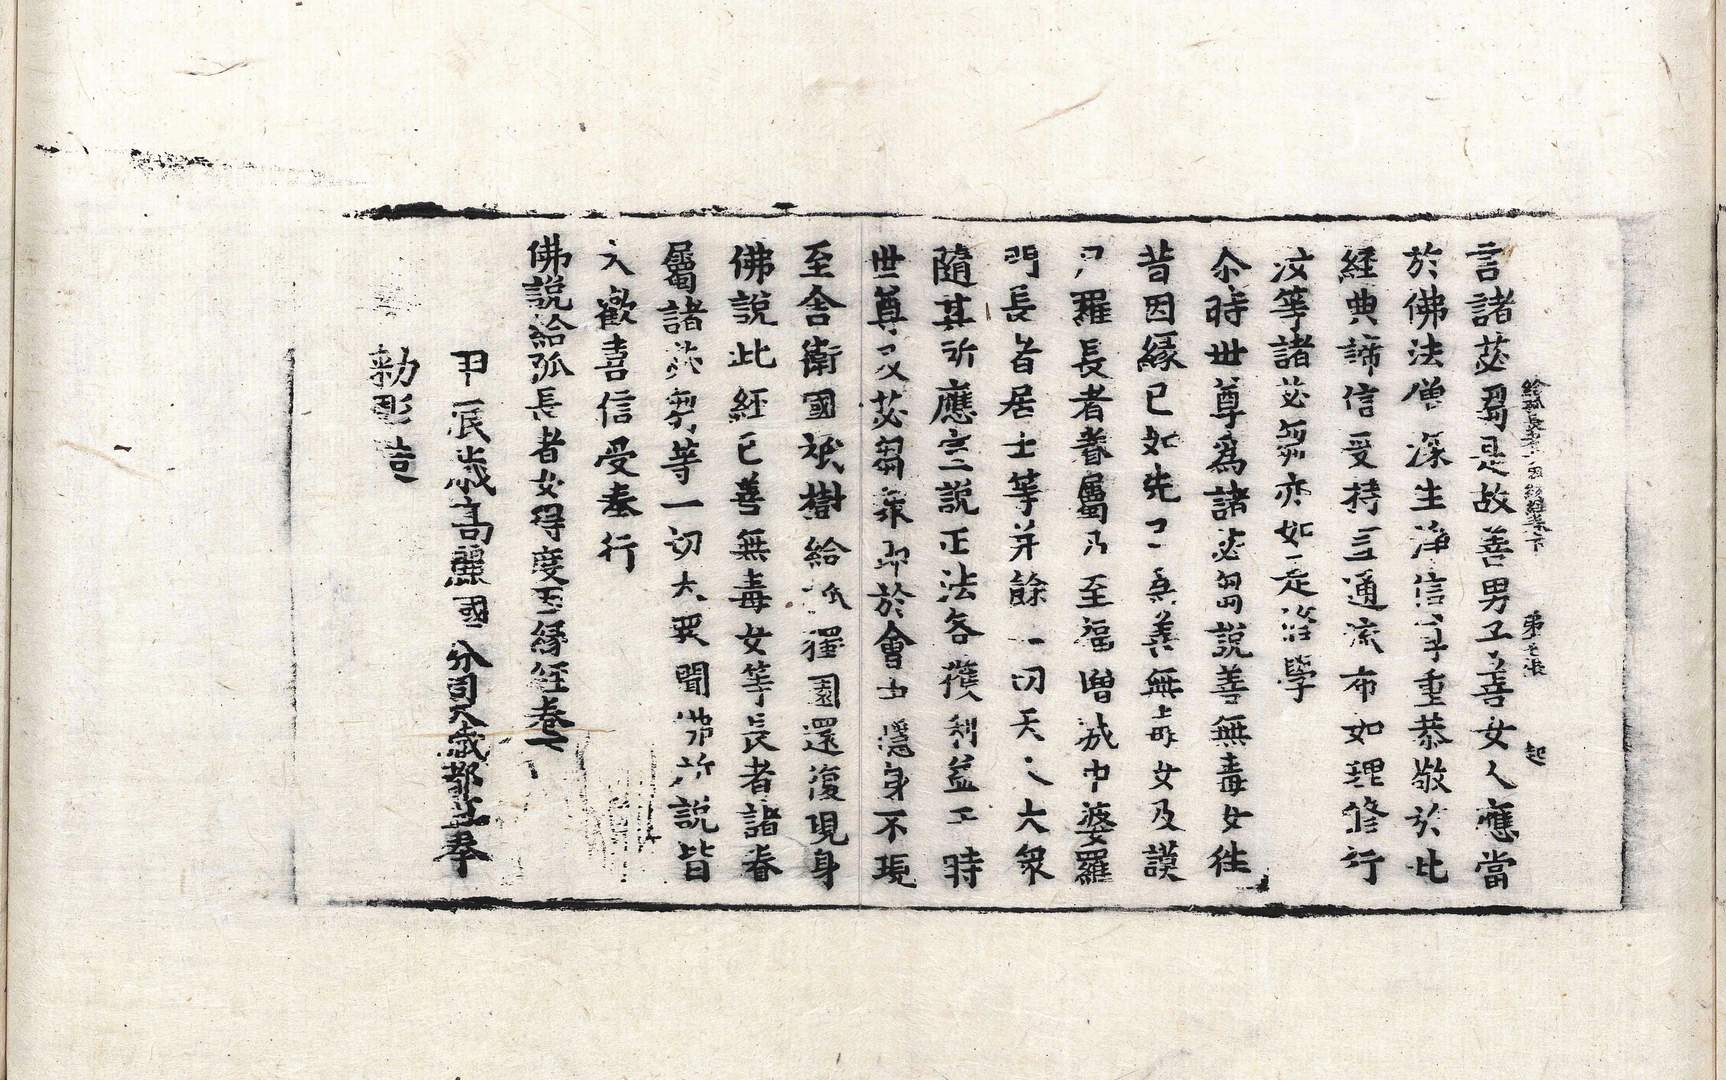 給孤長者女得度因緣經卷下 第七張 起
言諸苾芻是故善男子善女人應當
於佛法僧深生淨信尊重恭敬於此
經典諦信受持宣通流布如理修行
汝等諸苾芻亦如是修學
尒時世尊為諸苾芻說善無毒女往
昔因緣已如先已為善無毒女及謨
尸羅長者眷屬乃至福增城中婆羅
門長者居士等并餘一切天人大衆
隨其所應宣說正法各獲利益于時
世尊及苾芻衆即於會中隱身不現
至舍衛國祇樹給孤獨園還復現身
佛說此經已善無毒女等長者諸眷
屬諸苾芻等一切大衆聞佛所說皆
大歡喜信受奉行
佛說給孤長者女得度因緣經卷下
甲辰歲高麗國分司大藏都監奉
勅彫造